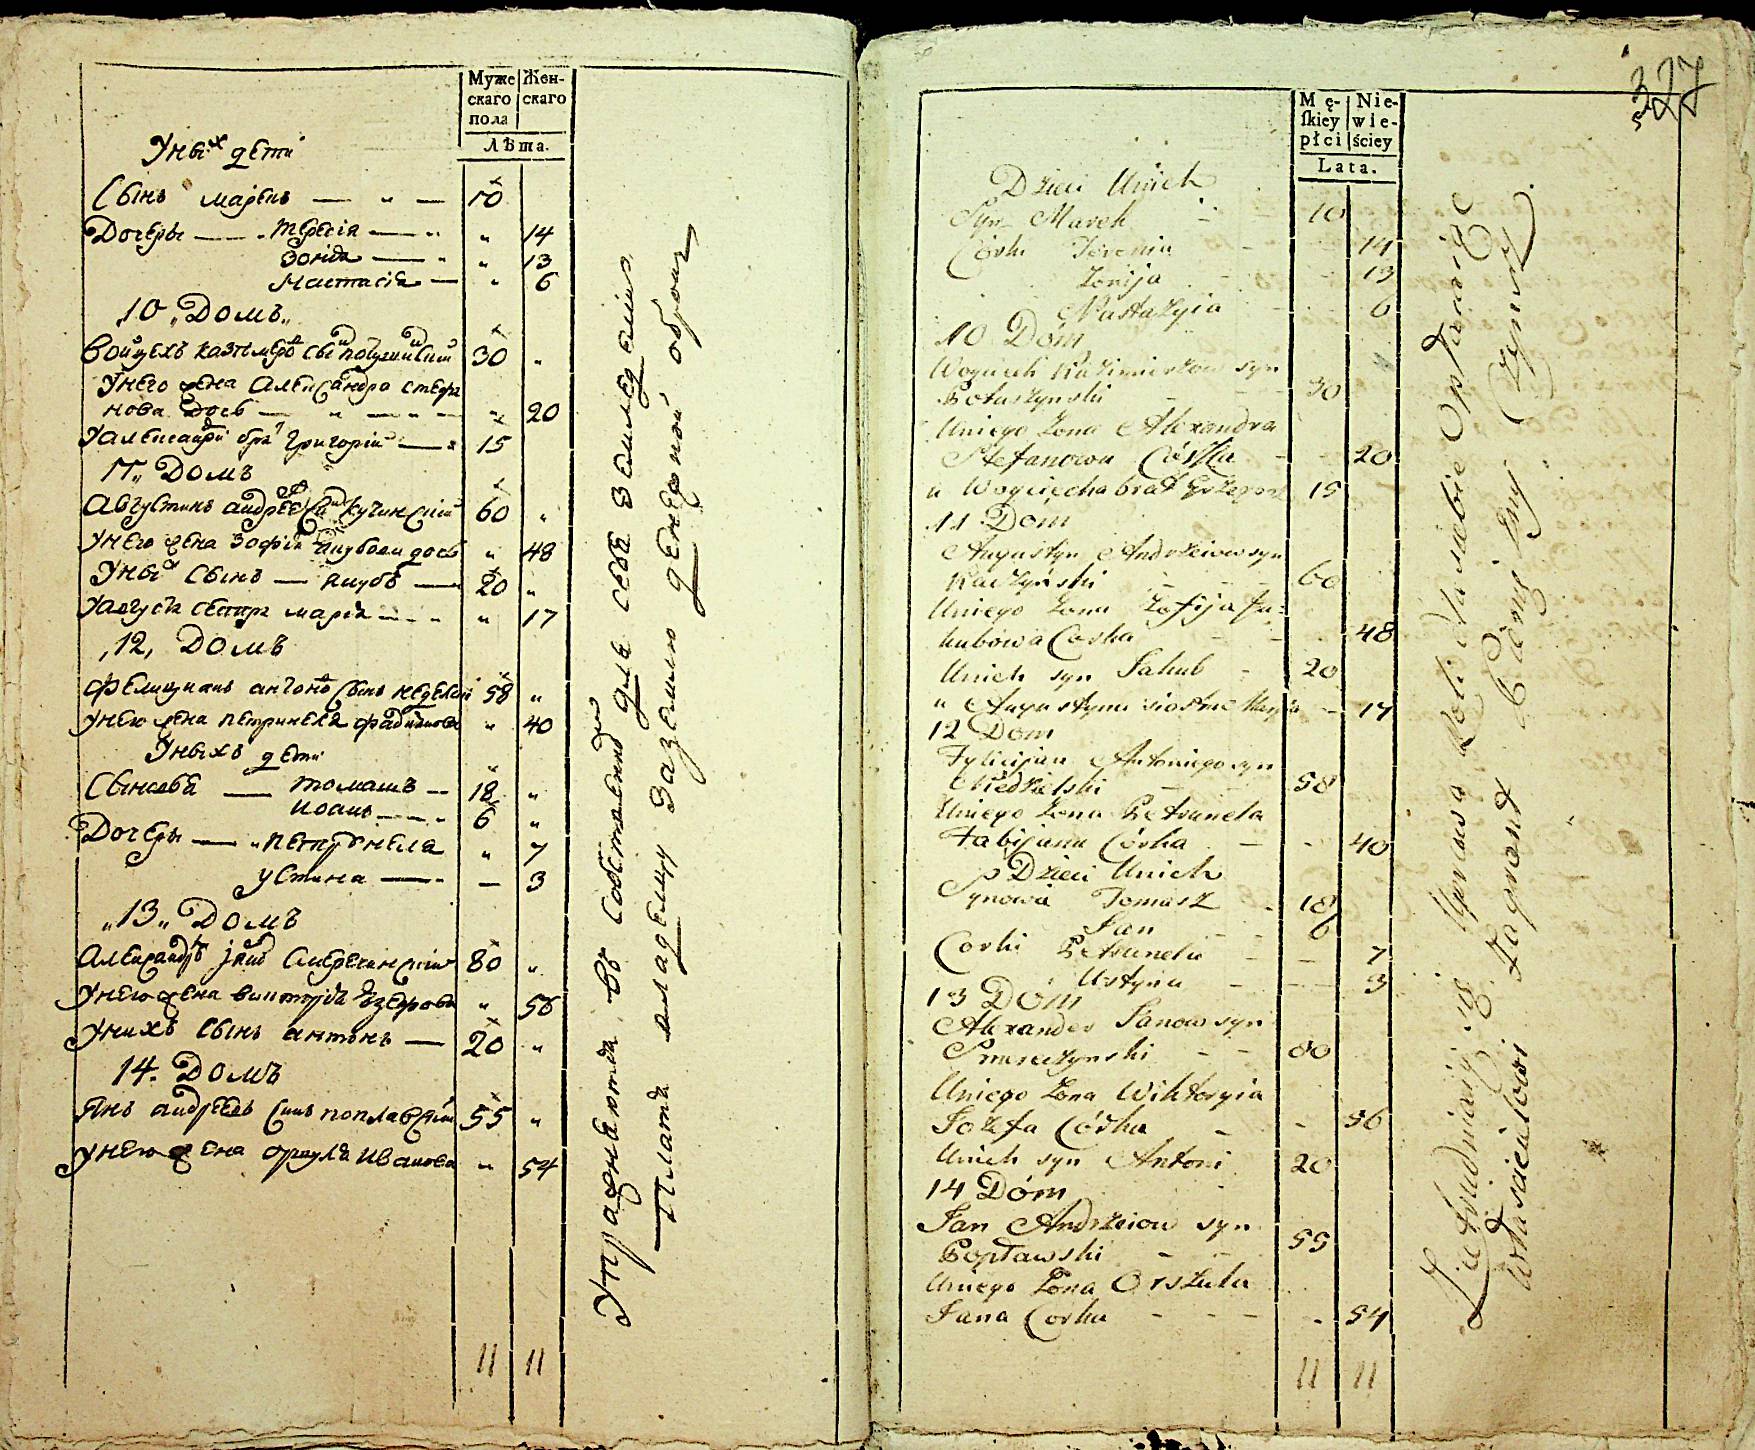 Муже Жен-
скаго скаго
пола
Лѣта.
У ных дети
Сынъ марекъ — „ — 10
Дочеры — „ тересія — „ „ 14
Зонія — „ „ 13
Настасія — „ 6
„10„ Домъ„
Войцехъ казимеровъ сынъ потушинскій 30 „
У него жена Александра стефа
нова дочь — „ — „ 20
У александры братъ григорій — „ 15
11„ Домъ
Августинъ андреевъ сынъ кучинскій 60 „
У него жена Зофія якубова дочь „ 48
У ных сынъ — якубъ — 20 „
У августа сестра марія — „ „ 17
„12„ Домъ
Фелиціанъ антоновъ сынъ неделскій 58 „
У него жена петрунеля фабиянова „ 40
У ныхъ дети
Сыновья — томашъ — 18 „
Иоанъ — „ 6 „
Дочеры — „ петрунела „ 7
устина — — 3
„13„ Домъ
Александръ яновъ смеречинскій 80 „
У него жена викторія иозефова „ 56
У нихъ сынъ антонъ — 20 „
14. Домъ
Янъ андреевъ сынъ поплавскій 55 „
У него жена оршуля Иванова „ 54
11 11
Упражняются въ собственно для себя земледелии
Плата владелцу за землю денежной оброк
327
Mę- Nie-
skiey wie-
płci ściey
Lata.
Dzieci Unich
Syn Marek 10
Córki Terenia 14
Zonija 13
Nastazyia 6
10 Dóm
Woyciech Kazimierzow syn
Potuszynski 30
Uniego żona Alexandra
Stefanowa Córka 20
u Woyciecha brat Grzegorz 15
11 Dóm
Augustyn Andrzeiow syn
Kuczynski 60
Uniego żona Zofija Ja-
kubowa Corka 48
Unich syn Jakub 20
u Augustyna siostra Marya 17
12 Dóm
Felicijan Antoniego syn
Niedzielski 58
Uniego żona Petrunela
Fabijana Córka 40
Dzieci Unich
Synowie Tomasz 18
Jan 6
Corki Petrunela 7
Ustyna 3
13 Dóm
Alexander Janow syn
Smereczynski 80
Uniego żona Wiktoryia
Jozefa Córka 56
Unich syn Antoni 20
14 Dóm
Jan Andrzeiow syn
Popławski 55
Uniego żona Orszula
Jana Corka 54
11 11
Zatrudniaią się Uprawą Roli dla siebie Opłacaiąc
Właścicielowi za grunt Pieniężny Czynsz